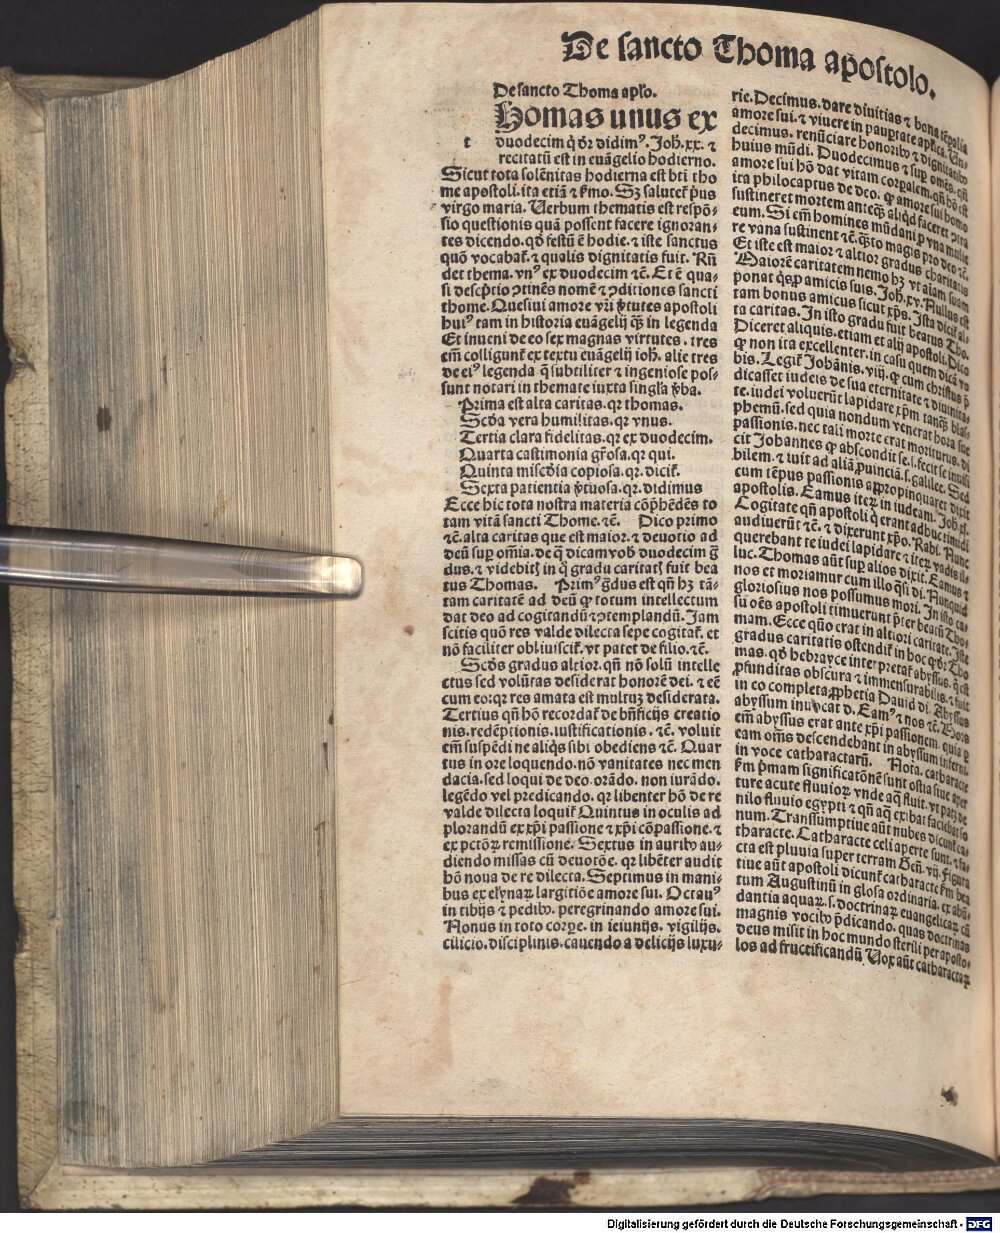 De sancto Thoma apostolo.
De sancto Thoma apło.
Homas unus ex
t duodecim q̇ dr̄ didimꝰ. Joh̄. xx. ⁊
recitatū est in euāgelio hodierno.
Sicut tota solēnitas hodierna est bti tho
me apostoli. ita etiā ⁊ ẜmo. Sꝫ salutet̄ p̄us
virgo maria. Uerbum thematis est respō-
sio questionis quā possent facere ignoran-
tes dicendo. qd̄ festū ē hodie. ⁊ iste sanctus
quō vocabat̄. ⁊ qualis dignitatis fuit. Rn̄
det thema. vnꝰ ex duodecim ⁊c̄. Et ē qua-
si descp̄tio ꝯtinēs nomē ⁊ ꝯditiones sancti
thome. Quesiui amore vr̄i v̄tutes apostoli
huiꝰ tam in historia euāgelij qꝫ in legenda
Et inueni de eo sex magnas virtutes. tres
em̄ colligunt̄ ex textu euāgelij ioh̄. alie tres
de eiꝰ legenda q̄ subtiliter ⁊ ingeniose pos-
sunt notari in themate iuxta singl̄a v̄ba.
Prima est alta caritas. qr thomas.
Scd̄a vera humilitas. qr vnus.
Tertia clara fidelitas. qr ex duodecim.
Quarta castimonia gr̄osa. qr qui.
Quinta misc̄dia copiosa. qr. dicit̄.
Sexta patientia v̄tuosa. qr. didimus
Ecce hic tota nostra materia cōp̄hēdēs to
tam vitā sancti Thome. ⁊c̄. Dico primo
⁊c̄. alta caritas que est maior. ⁊ deuotio ad
deū suꝑ om̄ia. de q̄ dicam vob̄ duodecim ḡ
dus. ⁊ videbit̄ in q̇ gradu caritat̄ fuit bea
tus Thomas. Primꝰ ḡdus est qn̄ hꝫ tā-
tam caritatē ad deū ꝙ totum intellectum
dat deo ad cogitandū ⁊ ꝯtemplandū. Jam
scitis quō res valde dilecta sepe cogitat̄. et
nō faciliter obliuiscit̄. vt patet de filio. ⁊c̄.
Scd̄s gradus altior. qn̄ nō solū intelle
ctus sed volūtas desiderat honorē dei. ⁊ eē
cum eo. qr res amata est multuꝫ desiderata.
Tertius qn̄ hō recordat̄ de bn̄ficijs creatio
nis. redēptionis. iustificationis. ⁊c̄. voluit
em̄ suspēdi ne aliq̇s sibi obediens ⁊c̄. Quar
tus in ore loquendo. nō vanitates nec men
dacia. sed loqui de deo. orādo. non iurādo.
legēdo vel predicando. qr libenter hō de re
valde dilecta loquit̄ Quintus in oculis ad
plorandū ex xp̄i passione ⁊ xp̄i cōpassione. ⁊
ex pctōꝝ remissione. Sextus in auribꝰ au-
diendo missas cū deuotōe. qr libēter audit
hō noua de re dilecta. Septimus in mani-
bus ex elꝰynaꝝ largitiōe amore sui. Octauꝰ
in tibijs ⁊ pedibꝰ. peregrinando amore sui.
Nonus in toto corꝑe. in ieiunijs. vigilijs.
cilicio. disciplinis. cauendo a delicijs luxu-
rie. Decimus. dare diuitias ⁊ bona tēꝑalia
amore sui. ⁊ viuere in pauꝑtate aplica. Un-
decimus. renūciare honoribꝰ ⁊ dignitatibꝰ
huius mūdi. Duodecimus ⁊ suꝑ om̄es. qn̄
amore sui hō dat vitam corꝑalem. qn̄ hō est
ita philocaptus de deo. ꝙ amore sui homo
sustineret mortem anteqꝫ aliqd faceret ꝯtra
eum. Si em̄ homines mūdani ꝓ vna mulie
re vana sustinent ⁊c̄. qꝫto magis pro deo ⁊c̄.
Et iste est maior ⁊ altior gradus charitatis
Maiorē caritatem nemo hꝫ vt aīam suam
ponat q̇s ꝓ amicis suis. Joh̄. xv. Nullus est
tam bonus amicus sicut xp̄s. Ista dicit̄ al-
ta caritas. In isto gradu fuit beatus Tho.
Diceret aliquis. etiam et alij apostoli. Dico
ꝙ non ita excellenter. in casu quem dicā vo
bis. Legit̄ Johānis. viij. ꝙ cum christus p̄
dicasset iudeis de sua eternitate ⁊ diuinita-
te. iudei voluerūt lapidare xp̄m tanqꝫ blas-
phemū. sed quia nondum venerat hora sue
passionis. nec tali morte erat moriturus. di
cit Johannes ꝙ abscondit se. i. fecit se inuisi
bilem. ⁊ iuit ad aliā ꝓuinciā. s. galilee. Sed
cum tēpus passionis appropinquaret dixit
apostolis. Eamus iteꝝ in iudeam. Joh̄. xi.
Cogitate qn̄ apostoli q̇ erant adhuc timidi
audiuerūt ⁊c̄. ⁊ dixerunt xp̄o. Rabi. Nunc
querebant te iudei lapidare ⁊ iteꝝ vadis il-
luc. Thomas aūt suꝑ alios dixit. Eamus ⁊
nos et moriamur cum illo q̄si di. Nunquid
gloriosius nos possumus mori. In isto ca-
su oēs apostoli timuerunt p̄ter beatū Tho-
mam. Ecce quō erat in altiori caritate. Iste
gradus caritatis ostendit̄ in hoc ꝙ dr̄ Tho
mas. qd̄ hebrayce interpretat̄ abyssus. q̄ est
ꝓfunditas obscura ⁊ immensurabilis. ⁊ fuit
in eo completa ꝓphetia Dauid di. Abyssus
abyssum inuocat d. Eamꝰ ⁊ nos ⁊c̄. Mors
em̄ abyssus erat ante xp̄i passionem. quia ꝑ
eam om̄s descendebant in abyssum inferni.
in voce catharactarū. Nota. catharacte
ẜm p̄mam significatōnē sunt ostia siue aper
ture acute fluuioꝝ vnde aq̄ fluit. vt patꝫ de
nilo fluuio egypti ⁊ qn̄ aq̄ exibat faciebat so
num. Transsumptiue aūt nubes dicunt̄ ca-
tharacte. Catharacte celi aperte sunt. ⁊ fa-
cta est pluuia super terram Gen̄. vij. Figura
tiue aūt apostoli dicunt̄ catharacte ẜm bea
tum Augustinū in glosa ordinaria. ex abū-
dantia aquaꝝ. s. doctrinaꝝ euangelicaꝝ cū
magnis vocibꝰ p̄dicando. quas doctrinas
deus misit in hoc mundo sterili per aposto-
los ad fructificandū Uox aūt catharactaꝝ
Digitalisierung gefördert durch die Deutsche Forschungsgemeinschaft - DFG